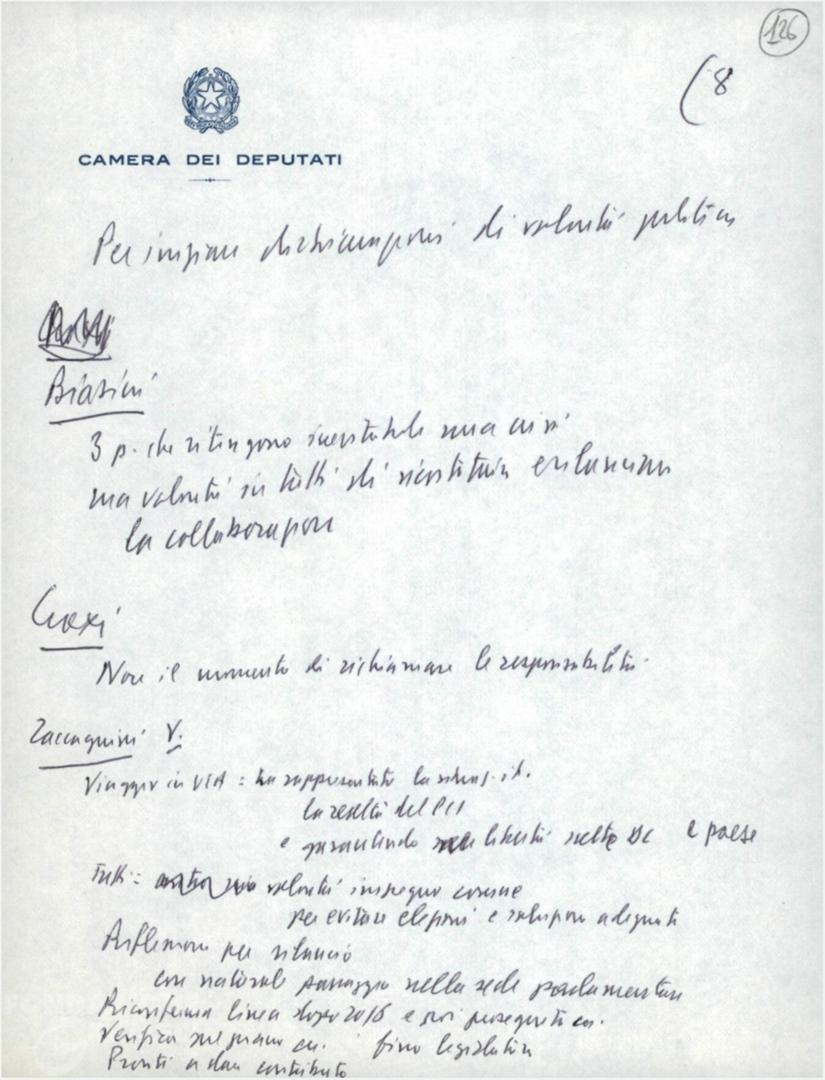 126
(8
CAMERA DEI DEPUTATI
Per di volontà politica
Biasini
3 p. che ritengono inevitabile una crisi
ma volontà in tutti di ricostituire e rilanciare
la collaborazione
Craxi
Non il momento di richiamare le responsabilità
Zaccagnini V.
Viaggio in USA = ha rappresentato la it.
la realtà del PCI
e garantendo libertà nella DC e paese
Tutti = volontà impegno comune
per evitare elezioni e soluzioni adeguate
Riflessione per rilancio
con naturale passaggio nella sede parlamentare
Riconferma linea dopo 20/6 e poi
Verifica sul piano fino legislatura
Pronti a dare contributo